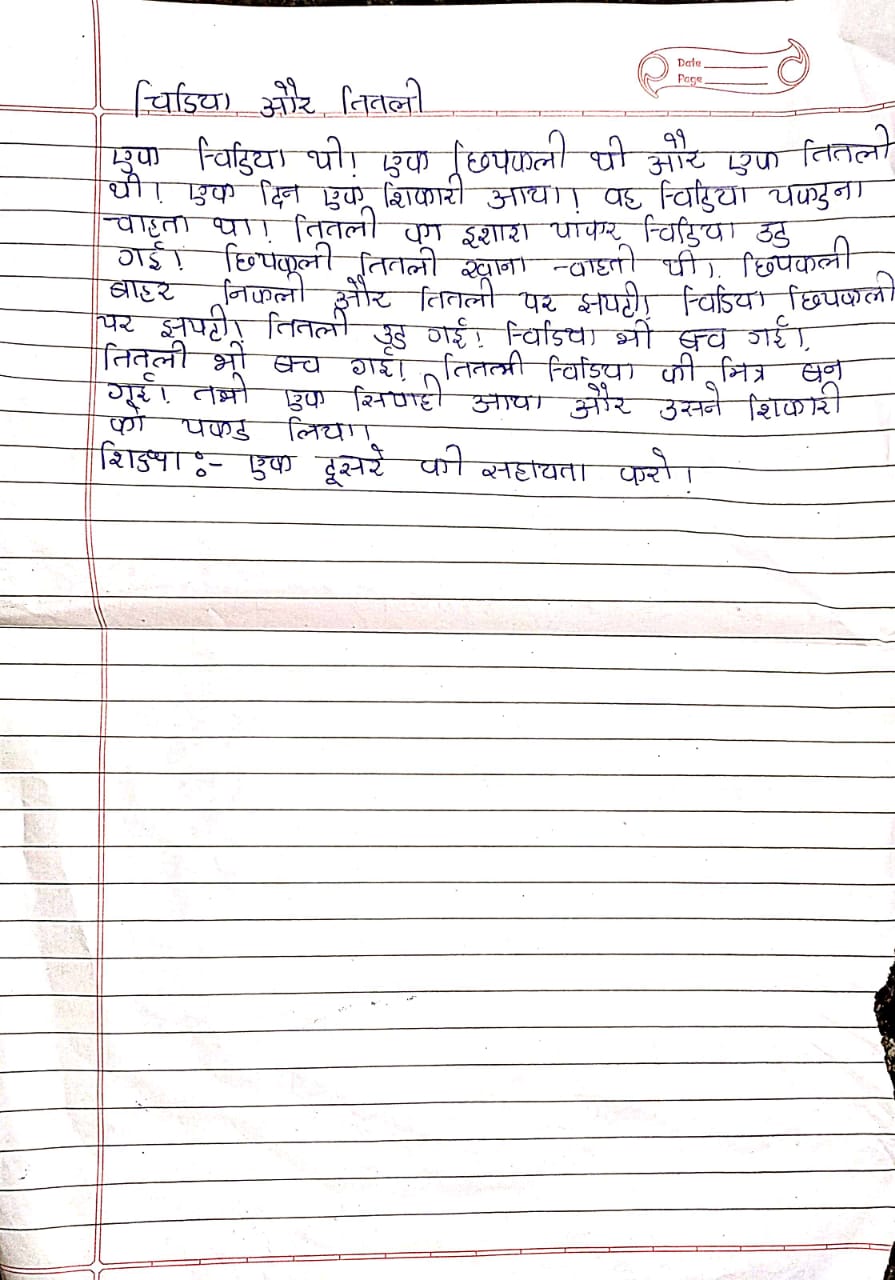 Date
Page
चिडिया और तितली
एक चिडिया थी। एक छिपकली थी और एक तितली
थी। एक दिन एक शिकारी आया। वह चिडिया पकडना
चाहता था। तितली का इशारा पाकर चिडिया उड
गई। छिपकली तितली खाना चाहती थी। छिपकली
बाहर निकली और तितली पर झपटी। चिडिया छिपकली
पर झपटी। तितली उड गई। चिडिया भी बच गई।
तितली भी बच गई। तितली चिडिया की मित्र बन
गई। तभी एक सिपाही आया और उसने शिकारी
को पकड लिया।
शिक्षा :- एक दूसरे की सहायता करो।